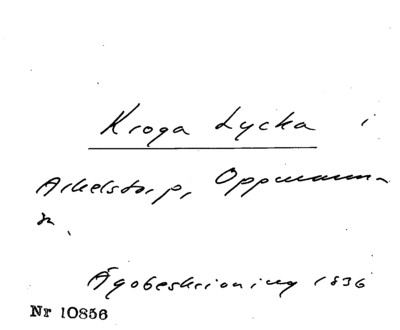 Kroga Lycka i
Arkelstorp, Oppmanna
sn.
Ägobeskrivning 1836
Nr 10856